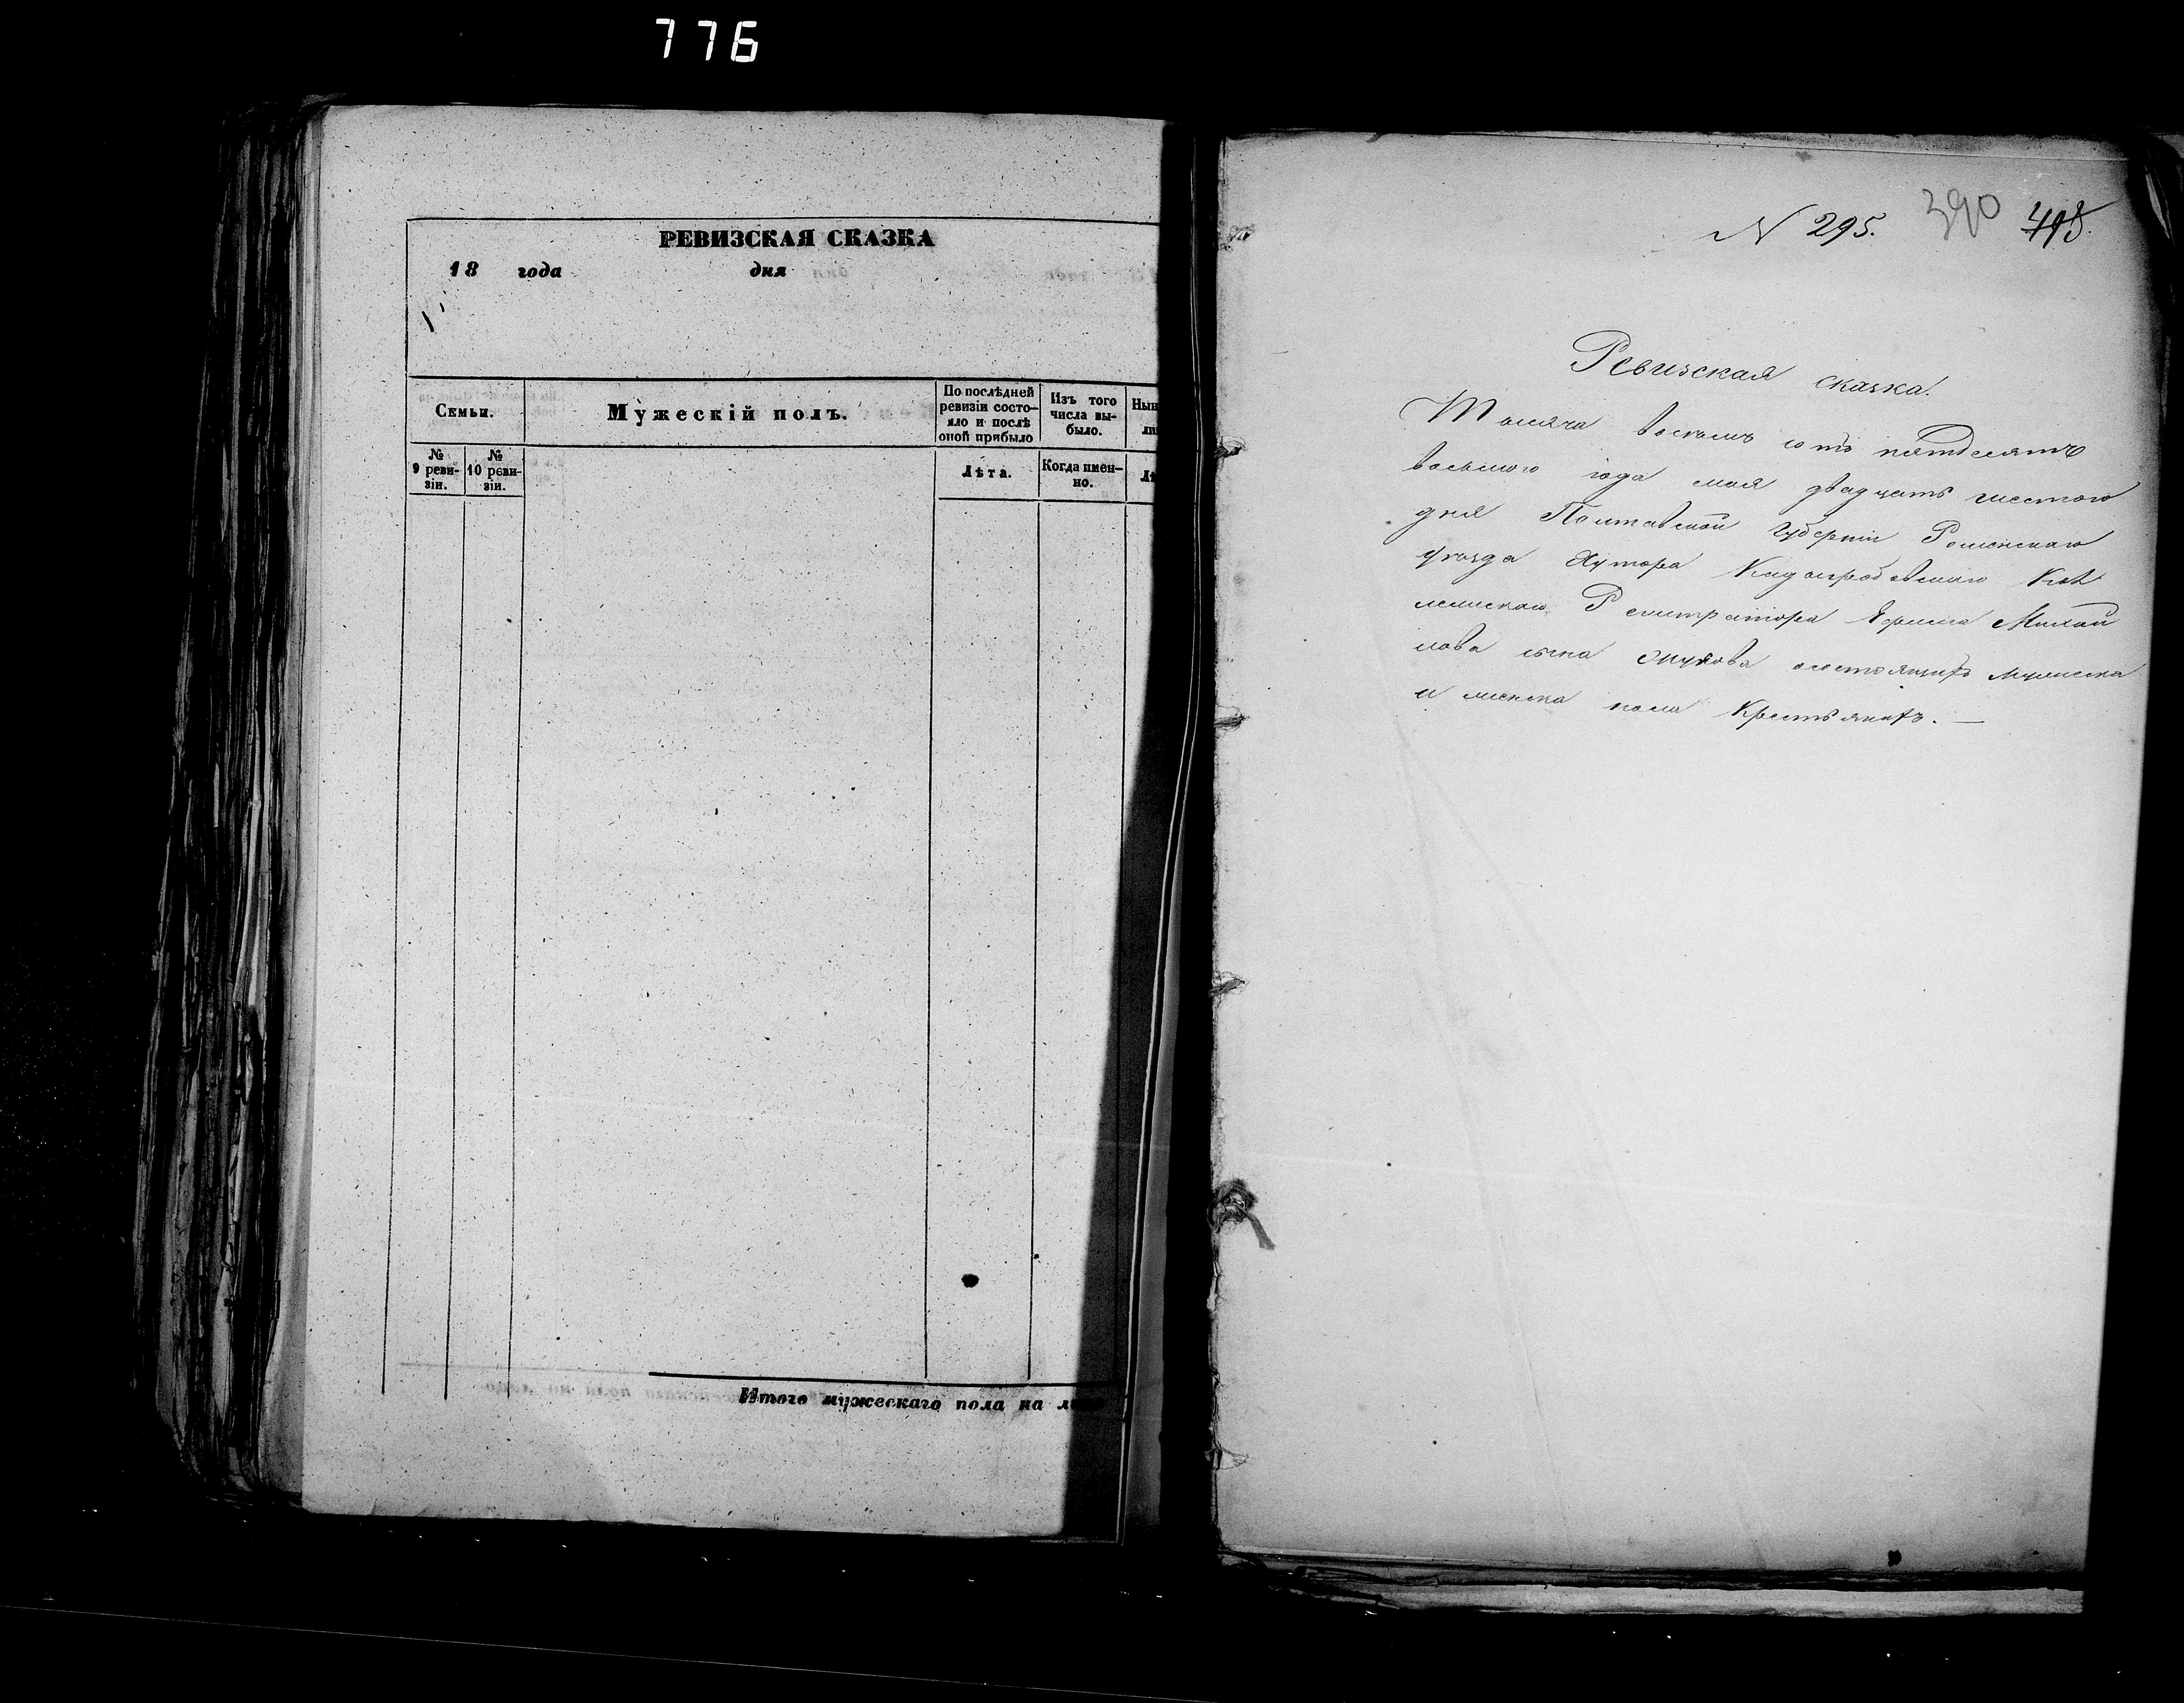 776
РЕВИЗСКАЯ СКАЗКА
18 года дня
Семьи.
Мужескій полъ.
По послѣдней ревизіи состо-
яло и послѣ
оной прибыло
Изъ того
числа вы-
было.
Нын
ли
№
9 реви-
зіи.
№
10 реви-
зіи.
Лѣта.
Когда имен-
но.
Лѣ
Итого мужескаго пола на л
N 295. 390 498.
Ревизская сказка.
Тысяча восемь сотъ пятдесятъ
восьмого года мая двадцать шестого
дня Полтавской Губерніи Роменскаго
уѣзда Хутора Кол
лежскаго Регистратора Ефима Михай
лова сына состоящихъ мужеска
и женска пола Крестьянахъ. —